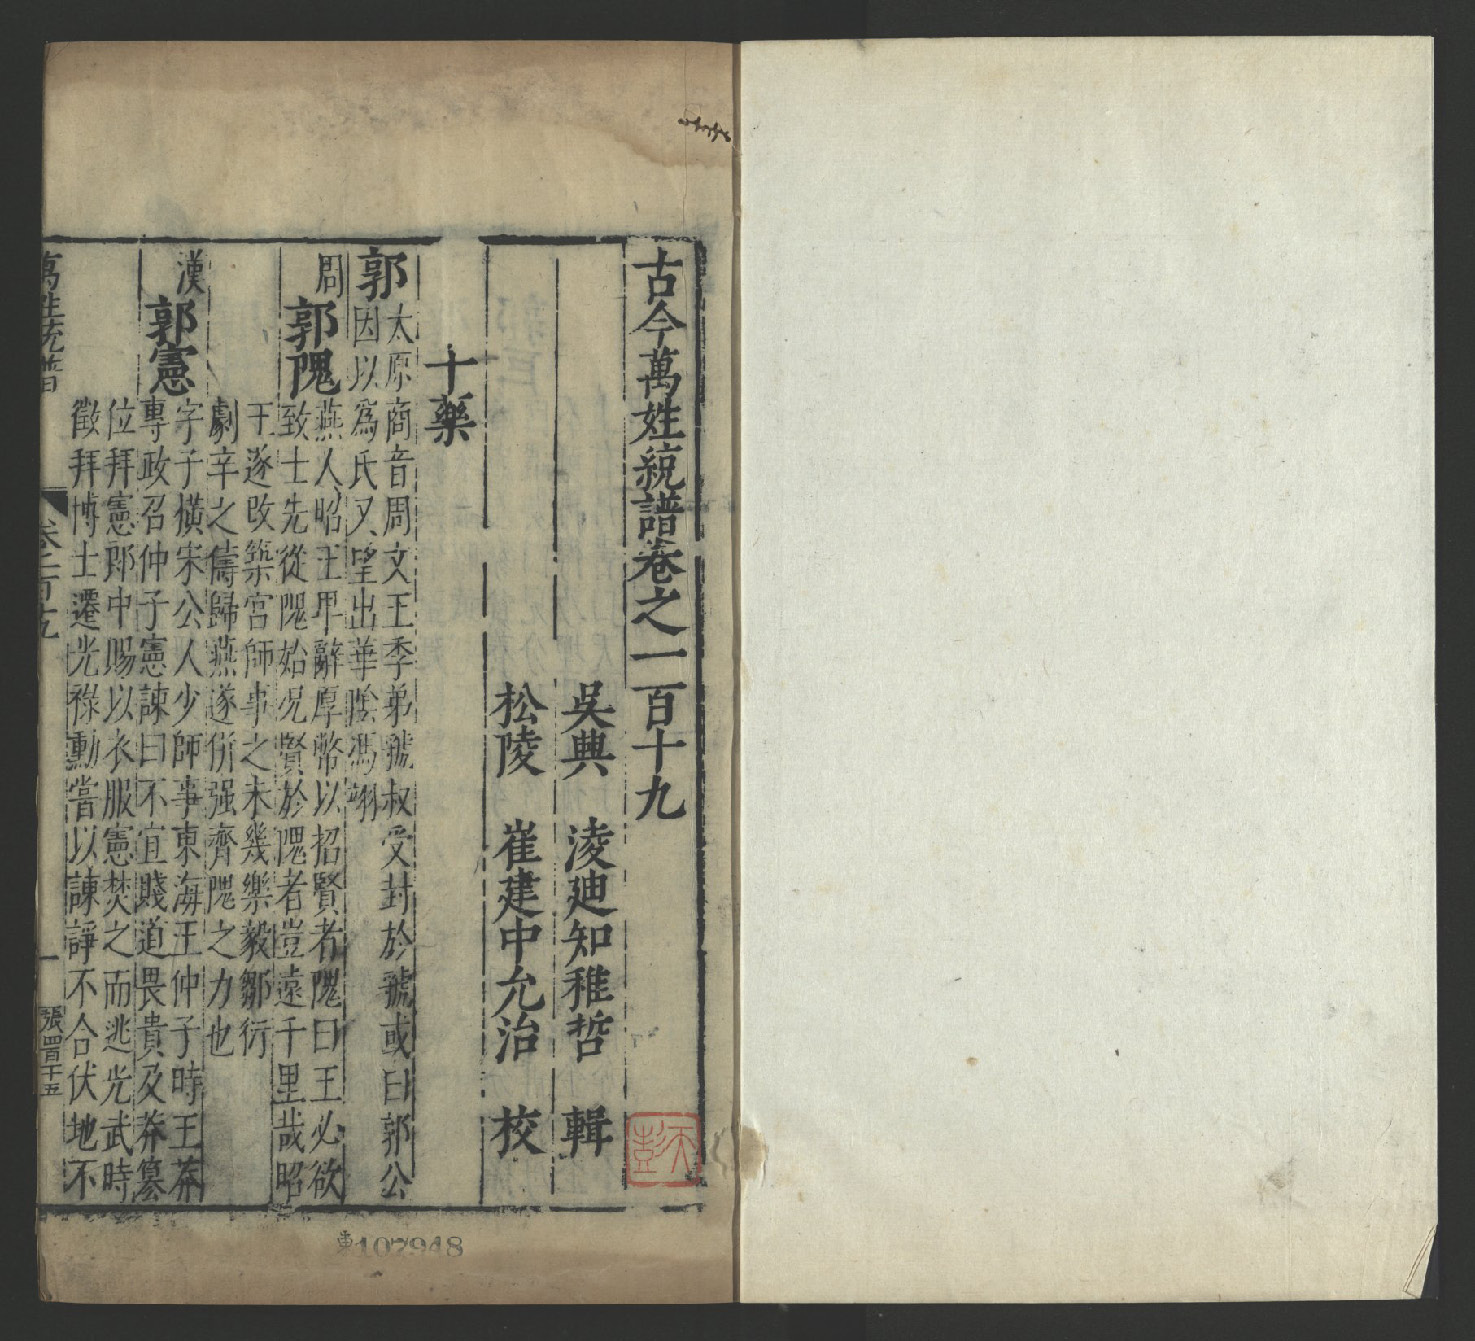 古今萬姓統譜卷之一百十九
吳興 淩迪知稚哲 輯
松陵 崔建中允治 校
十藥
郭
太原商音周文王季弟虢叔受封於虢或曰郭公
因以爲氏又望出華陰馮翊
周
郭隗
燕人昭王卑辭厚幣以招賢者隗曰王必欲
致士先從隗始况賢於隗者豈遠千里哉昭
王遂改築宮師事之未幾樂毅鄒衍
劇辛之儔歸燕遂併强齊隗之力也
漢
郭憲
字子橫宋公人少師事東海王仲子時王莽
專政召仲子憲諫曰不宜賤道畏貴及莽簒
位拜憲郎中賜以衣服憲焚之而逃光武時
徵拜博士遷光祿勳嘗以諫諍不合伏地不
萬姓統譜
卷一百十九
一
張四百十五
東107948